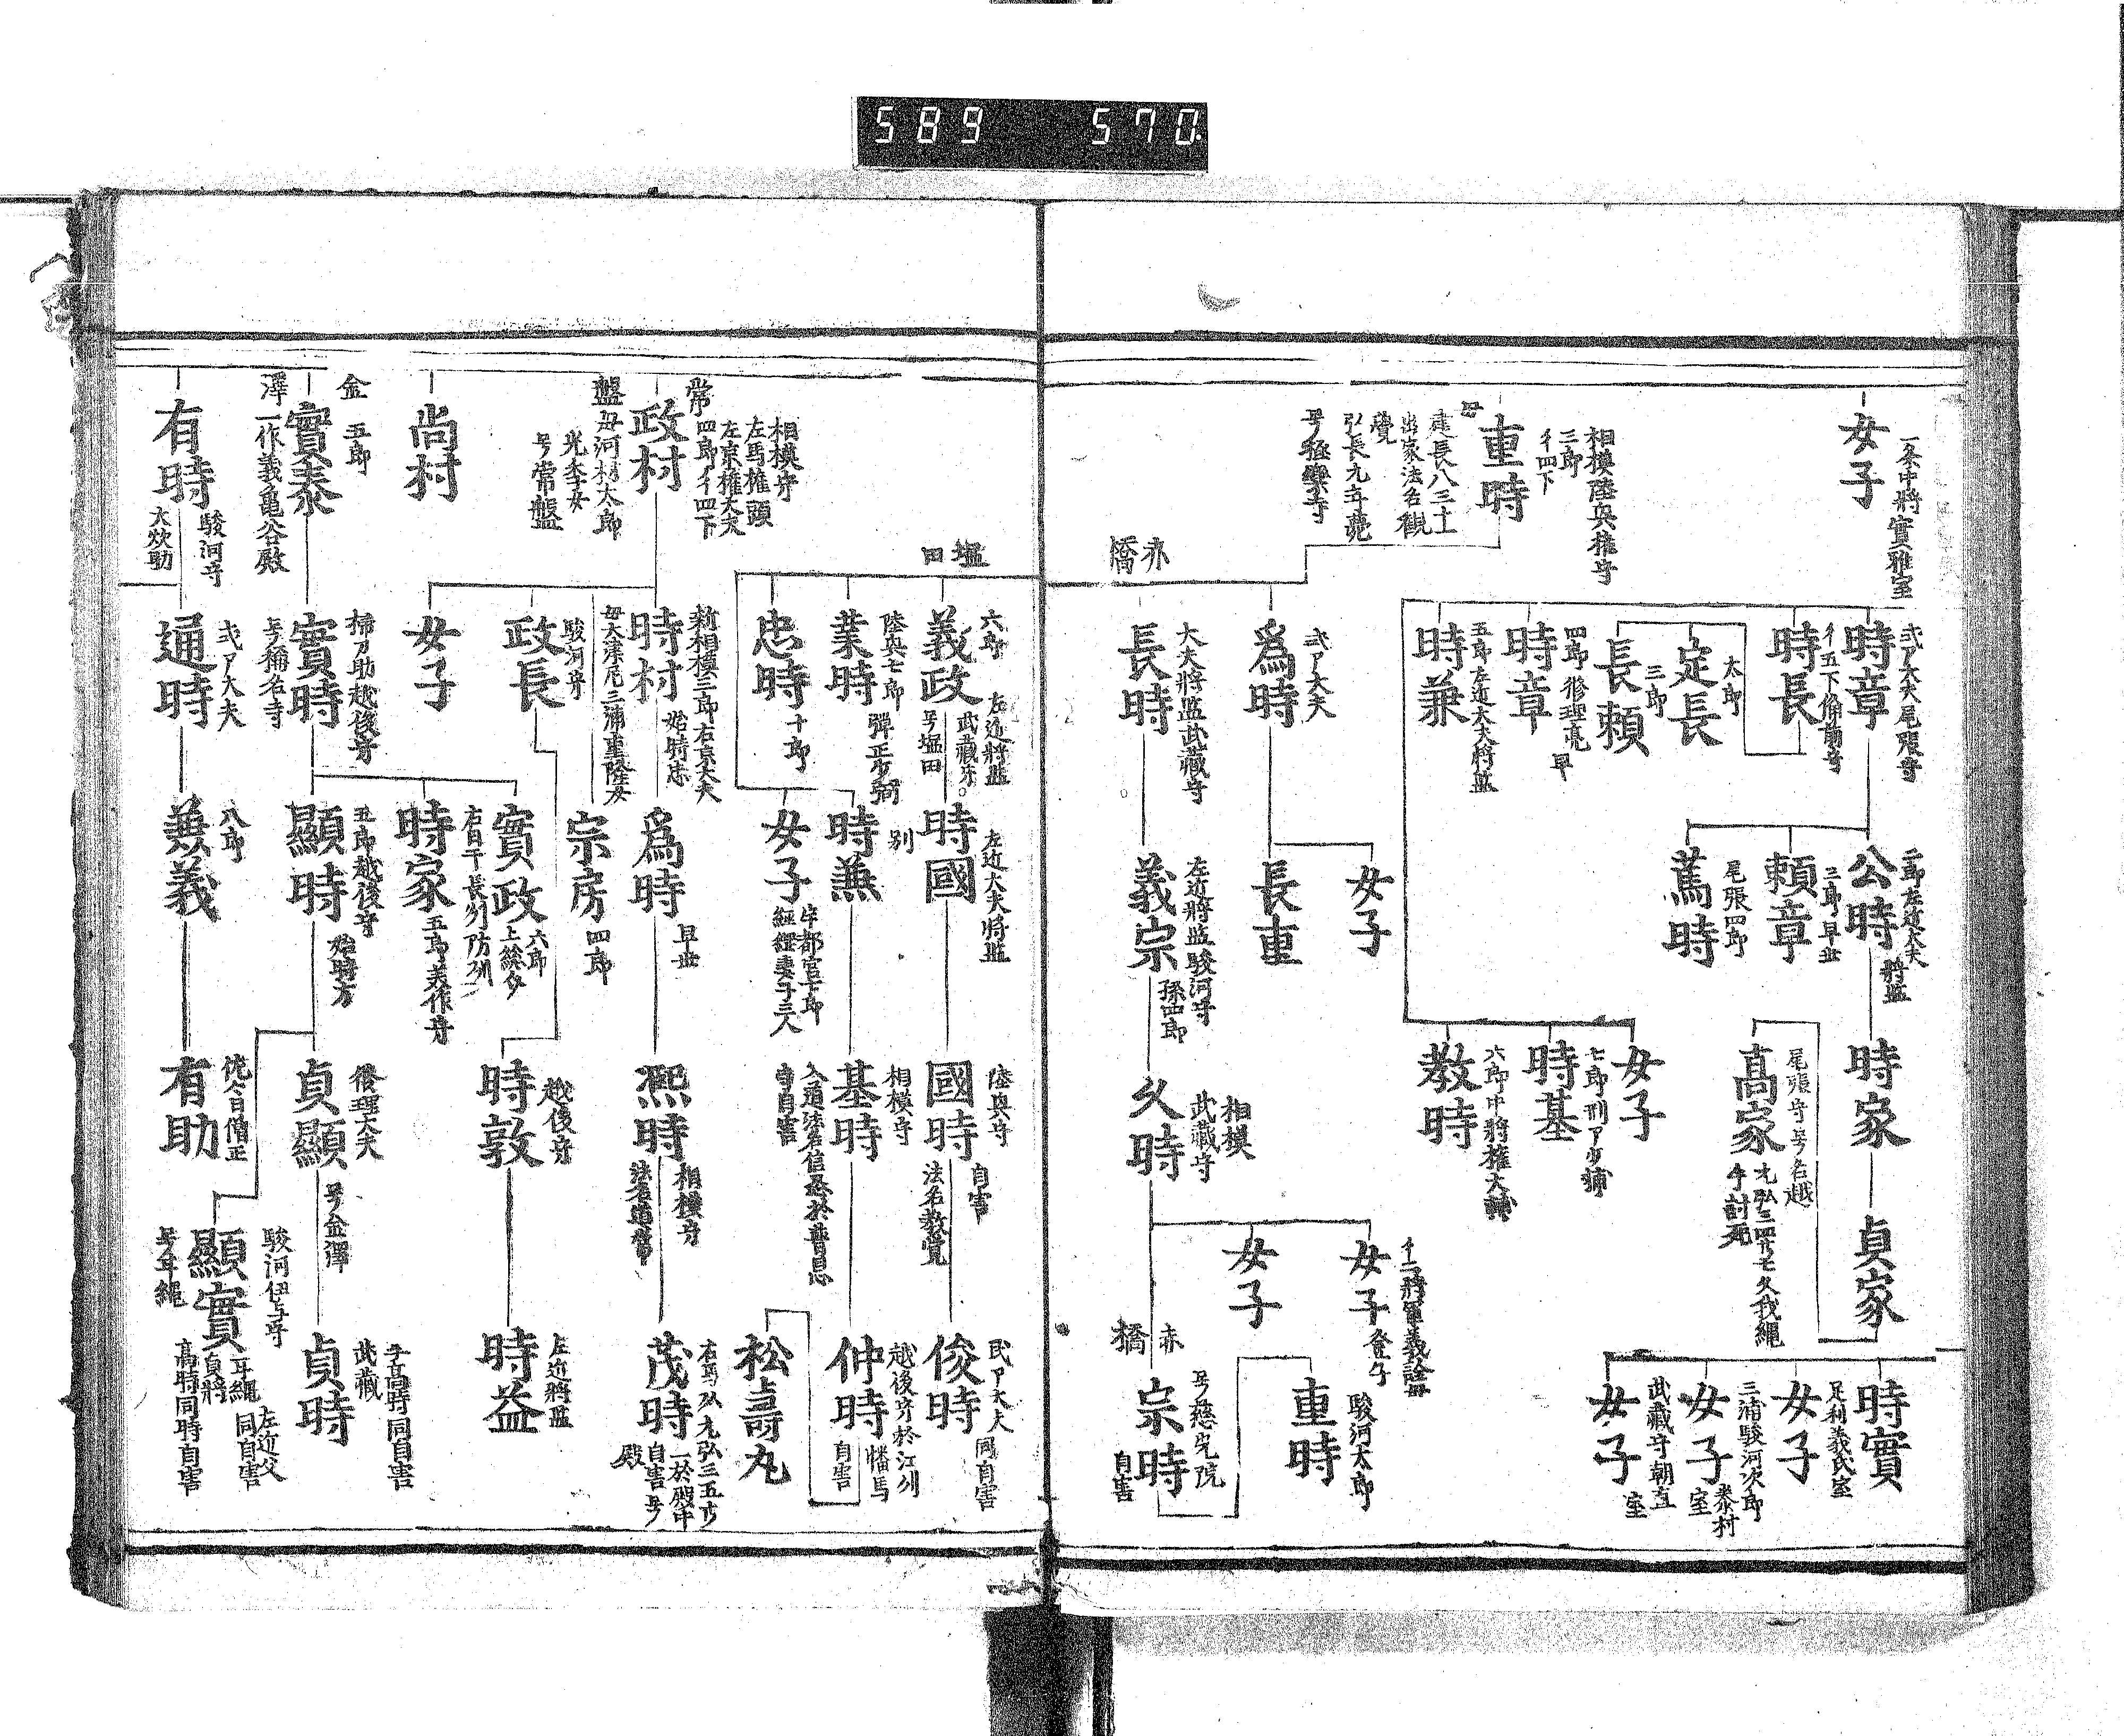 589 570.
女子
一条中將實雅室
重時
相模陸奥權守
三郎
四下
建長八三十一
出家法名觀
覺
弘長元年薨
号極樂寺
時章
弐ア大夫尾張守
時長
五下備前守
定長
太郎
長頼
三郎
時章
四郎修理亮
早
時兼
五郎左近大夫將監
公時
二郎左近大夫
將監
頼章
三郎早世
篤時
尾張四郎
時家
貞家
高家
尾張守号名越
元弘三四廿七久我縄
手討死
女子
時基
七郎刑ア少輔
教時
六郎中將權大輔
時實
女子
足利義氏室
女子
三浦駿河次郎
泰村
室
女子
武藏守朝直
室
赤
橋
為時
弐ア大夫
長時
大夫將監武藏守
女子
長重
義宗
左近將監駿河守
孫四郎
久時
相模
武藏守
女子
將軍義詮母
登子
女子
赤
橋
宗時
号慈光院
自害
重時
駿河太郎
塩
田
義政
六郎
左近將監
武藏守
号塩田
業時
陸奥七郎
彈正少弼
忠時
十郎
時國
左近大夫將監
時兼
別
女子
宇都宮下郎
經綱妻子三人
國時
陸奥守
自害
法名教覚
基時
相模守
入道法名信忍於普恩
寺自害
俊時
民ア大夫
同自害
仲時
越後守於江州
幡馬
自害
松壽丸
常
盤
政村
相模守
左馬權頭
左京權大夫
四郎 四下
母河村太郎
光季女
号常盤
時村
新相模三郎右京大夫
始時忠
母大津尼三浦重隆女
政長
駿河守
女子
為時
早世
宗房
四郎
熙時
相模守
法名道常
茂時
右馬 元弘三五廿
二於殿中
自害号
殿
時敦
越後守
時益
左近將監
尚村
金
澤
實泰
五郎
一作義亀谷殿
實時
掃ア助越後守
号稱名寺
實政
六郎
上総介
時家
五郎美作守
顯時
五郎越後守
始時方
貞顯
修理大夫
号金澤
貞時
武藏
于高時同自害
顯實
駿河伊与守
号耳縄
貞將
左近父
同自害
高時同時自害
有時
駿河守
大炊助
通時
弐ア大夫
兼義
八郎
有助
佐々目僧正